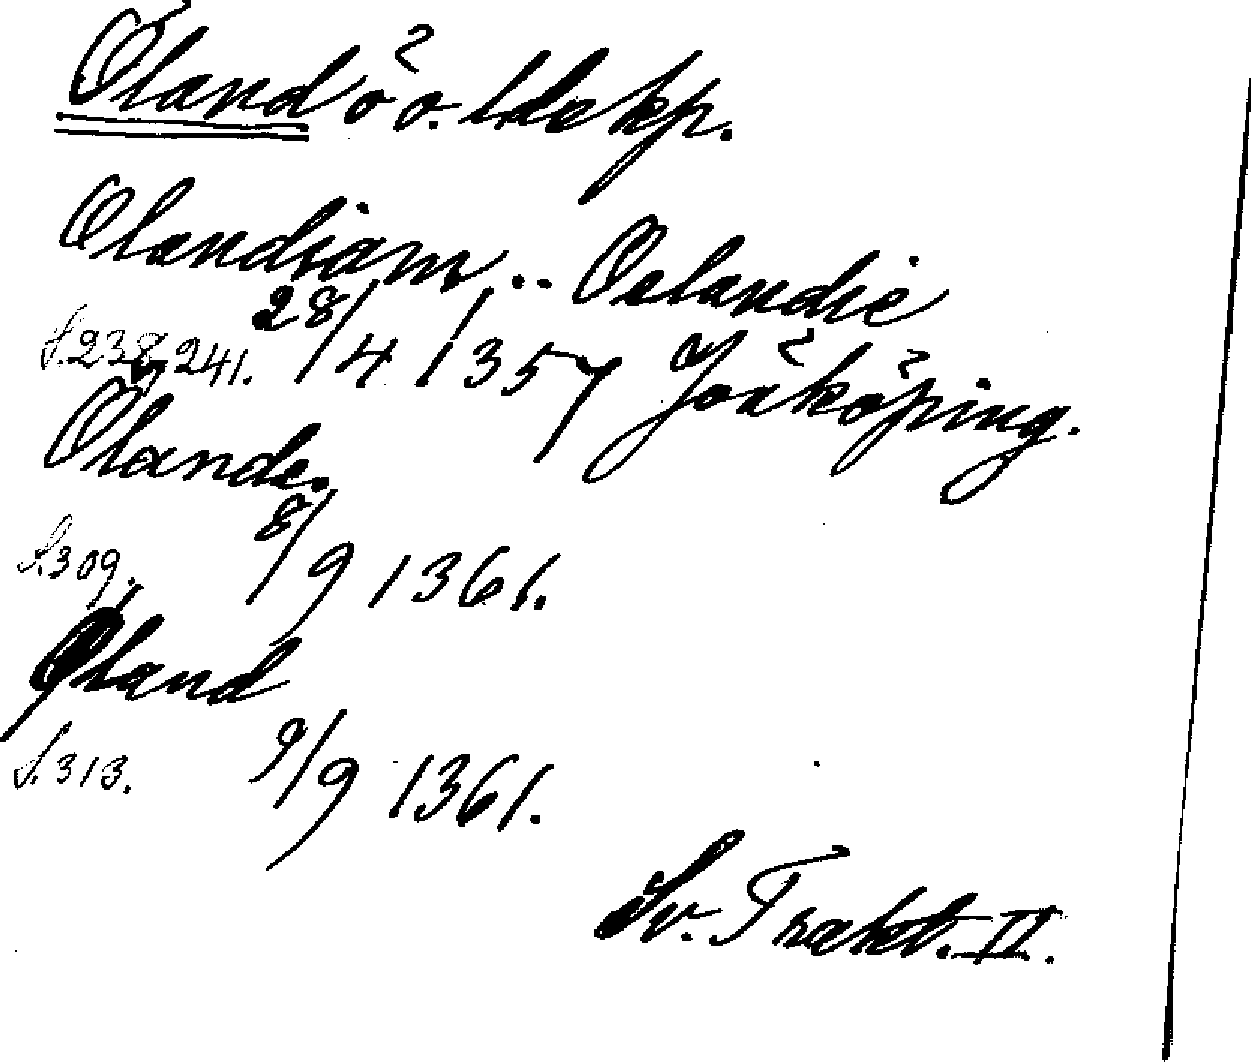 Öland ö o. ldskp.
Olandiam .. Oelandie
S. 238, 241. 28/4 1357 Jönköping.
Ølande.
S. 309. 8/9 1361.
Øland
S. 313. 9/9 1361.
Sv. Trakt. II.